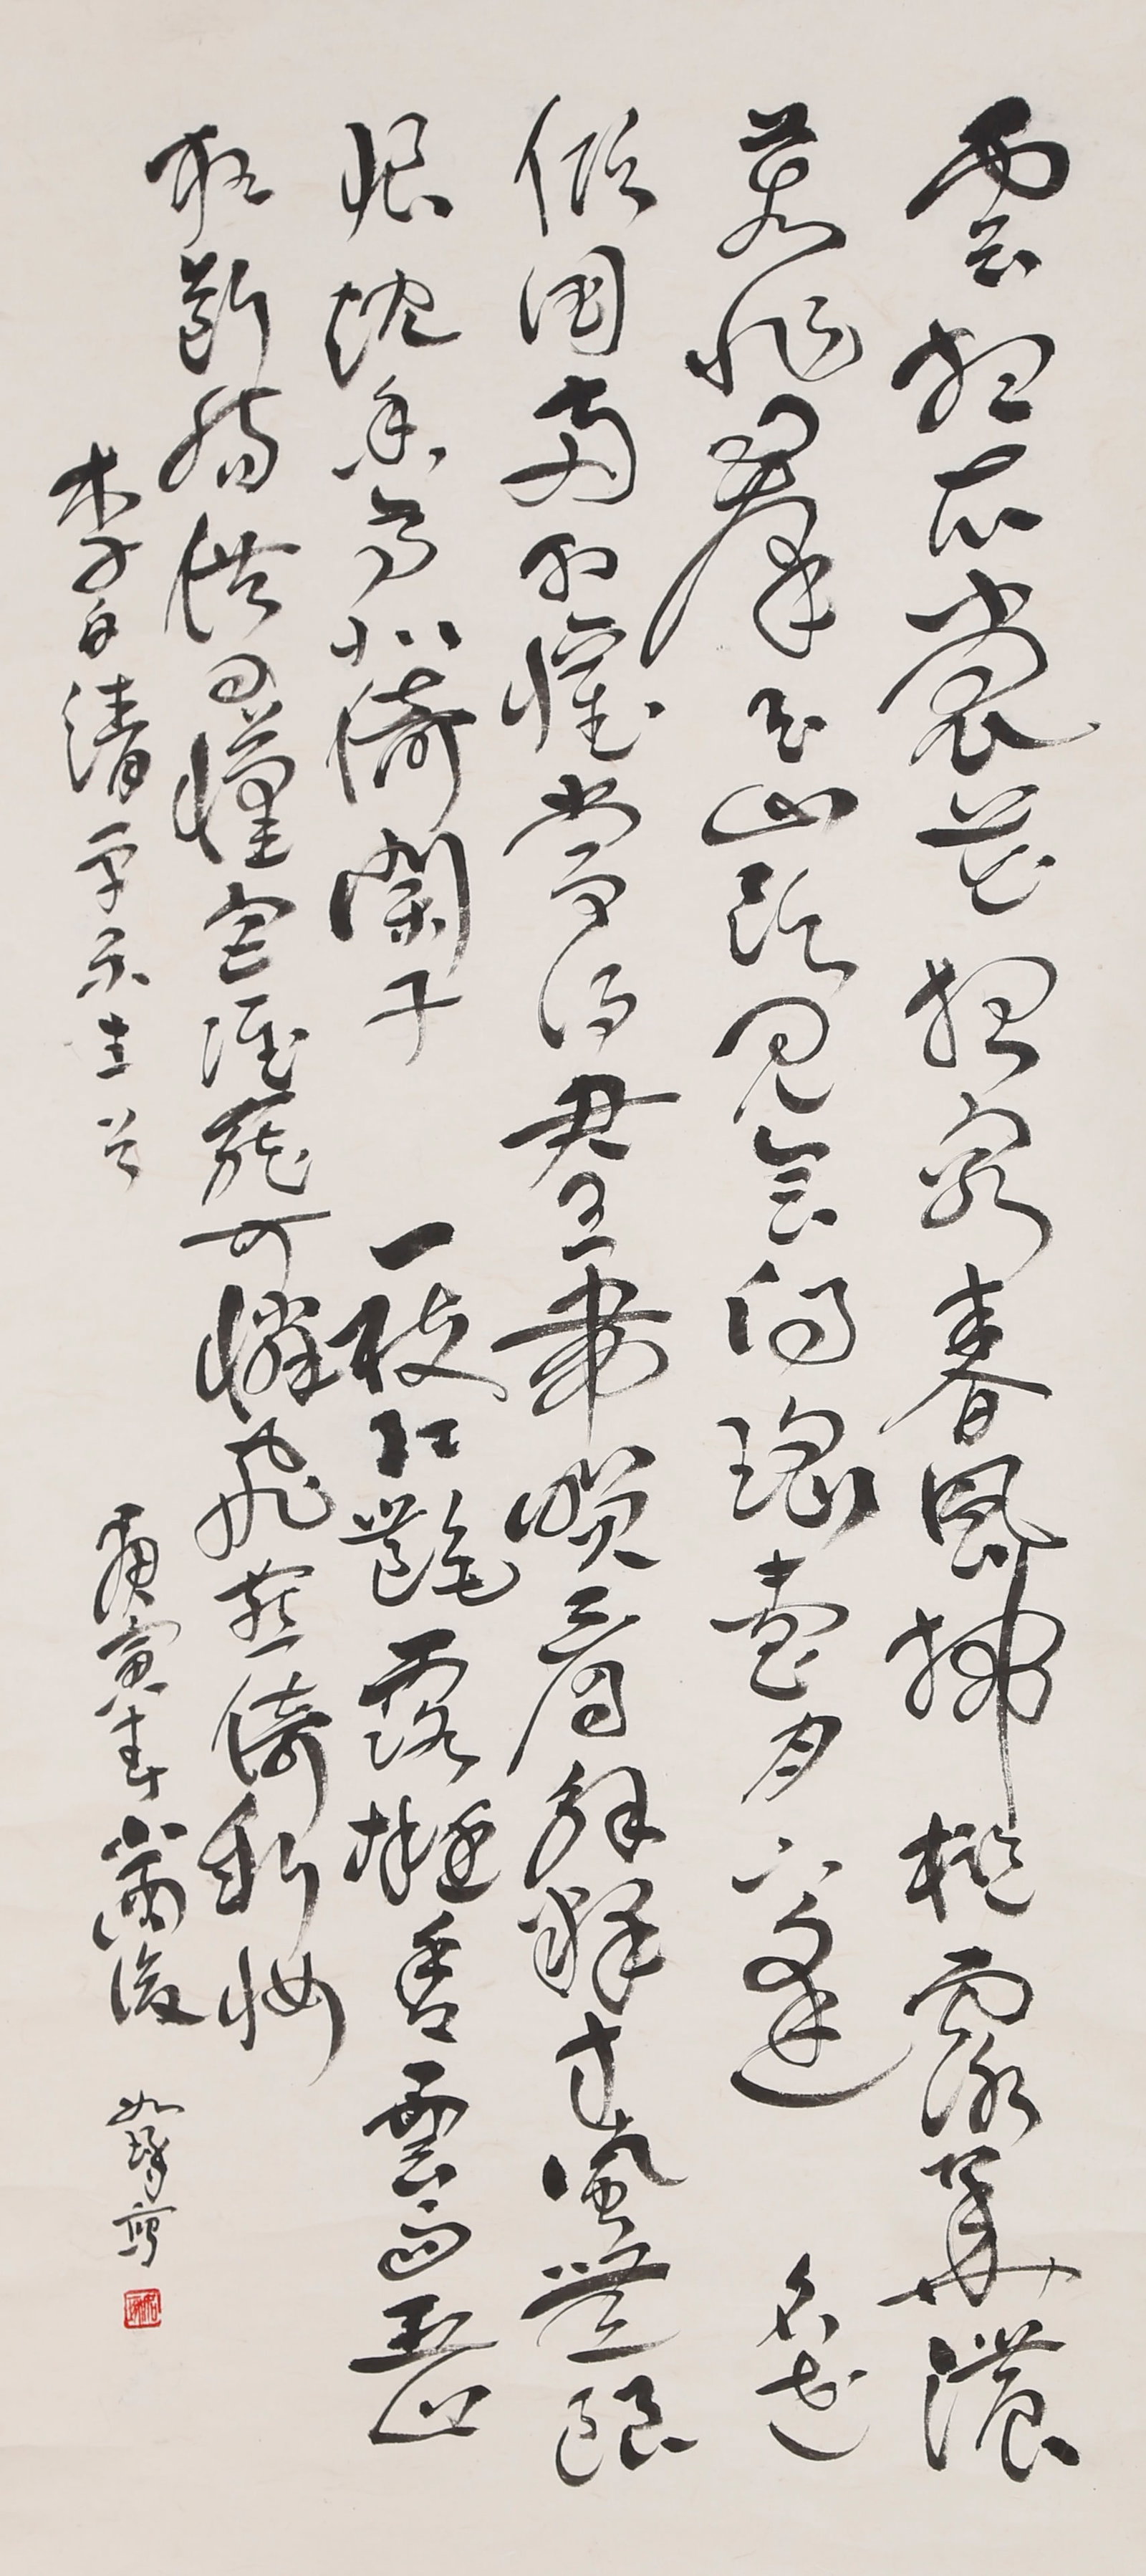 雲想衣裳花想容春風拂檻露華濃
若非羣玉山頭見會向瑤臺月下逢 名花
傾國兩相懽常得君王帶笑看解釋春風無限
恨沈香亭北倚闌干 一枝紅艷露凝香雲雨巫山
枉斷腸借問漢宮誰得似可憐飛燕倚新妝
李白清平樂三首 庚寅年小滿後 如寫